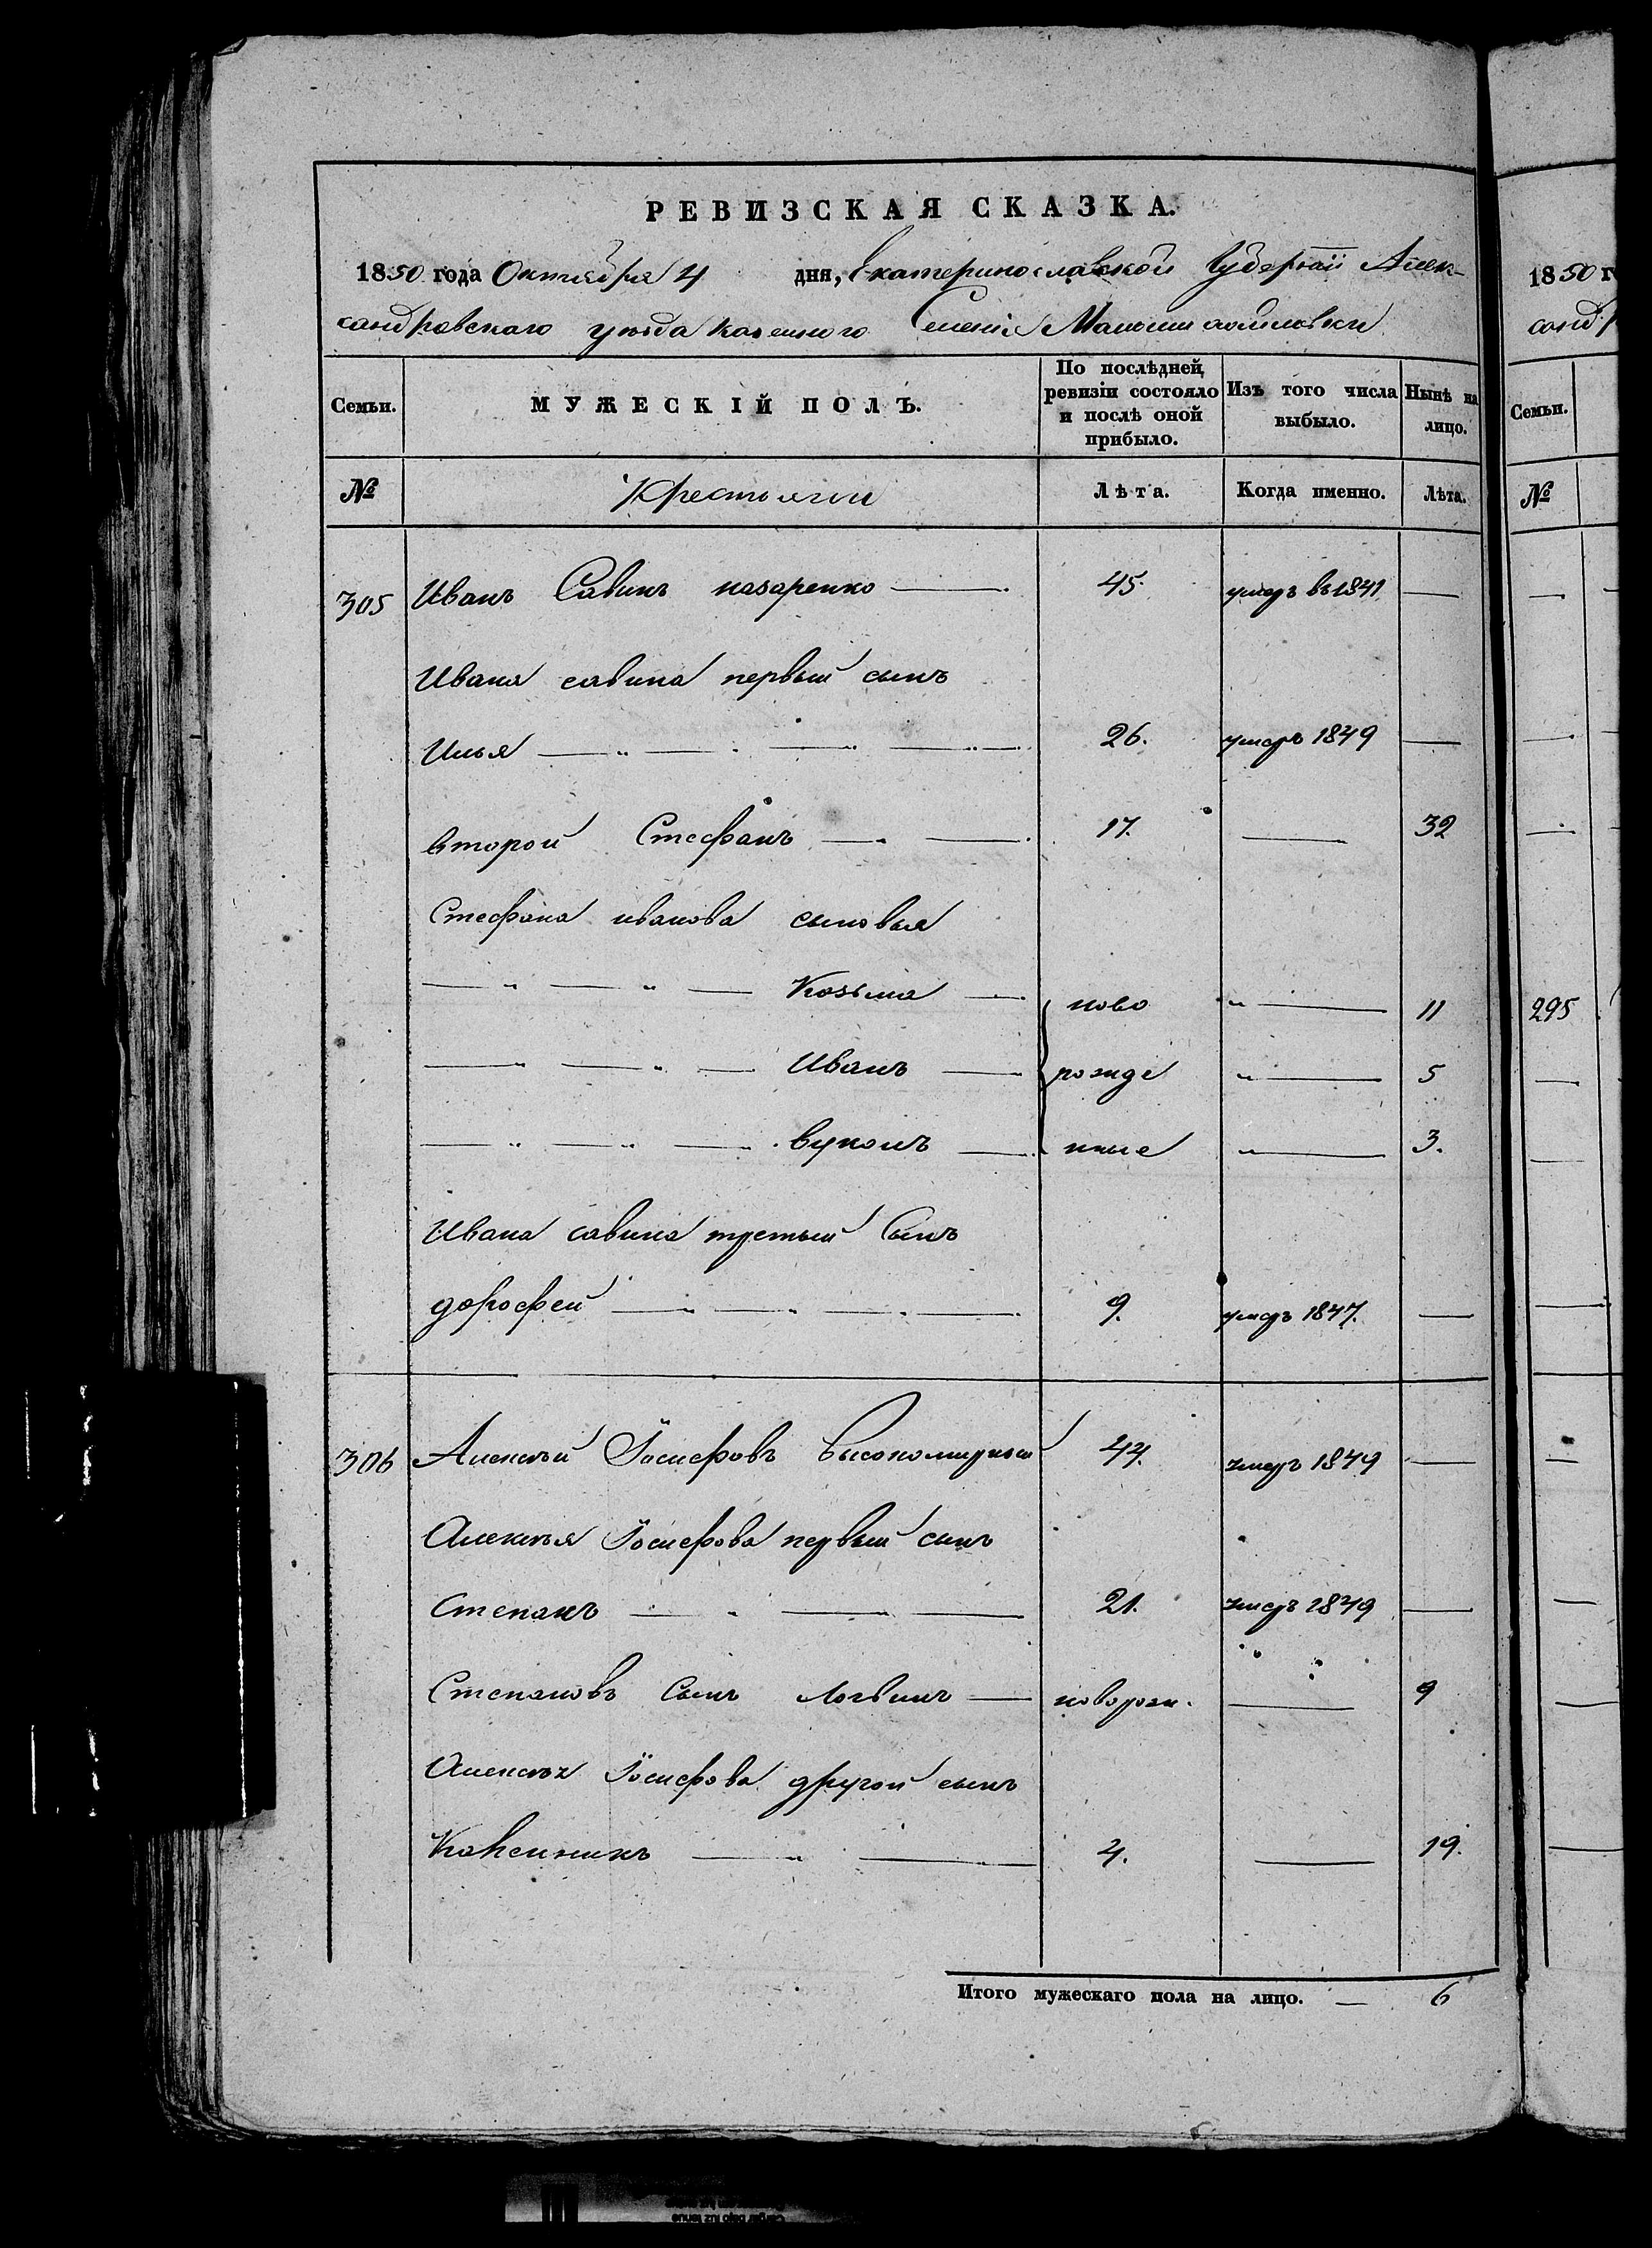 РЕВИЗСКАЯ СКАЗКА.
1850 года Октября 4 дня, Екатеринославской Губернiи Алек-
сандровскаго уезда казенного Селенiя
Семьи. МУЖЕСКІЙ ПОЛЪ. По послѣдней ревизіи состояло и послѣ оной прибыло. Изъ того числа выбыло. Нынѣ на лицо.
№ Крестьяни Лѣта. Когда именно. Лѣта.
305 Иванъ Савинъ назаренко — 45. умеръ въ 1841 —
Ивана савина первый сынъ
Илья — 26. умеръ 1849 —
второй Стефанъ — 17. — 32
Стефана иванова сыновья
— " — " — Козьма — ново " — 11
— " — " — Иванъ — рожде " — 5
— " — " — вуколъ — нные " — 3.
Ивана савина третый Сынъ
дорофей — 9. умеръ 1847. —
306 Алексѣй Іосифовъ 44. умеръ 1849 —
Алексѣя Іосифова первый сынъ
Степанъ — 21. умеръ 1849 —
Степановъ Сынъ логвинъ — новорож. — 9
Алексѣя Іосифова другой сынъ
4. — 19.
Итого мужескаго пола на лицо. — 6
1850 г
санд
Семьи.
№
295